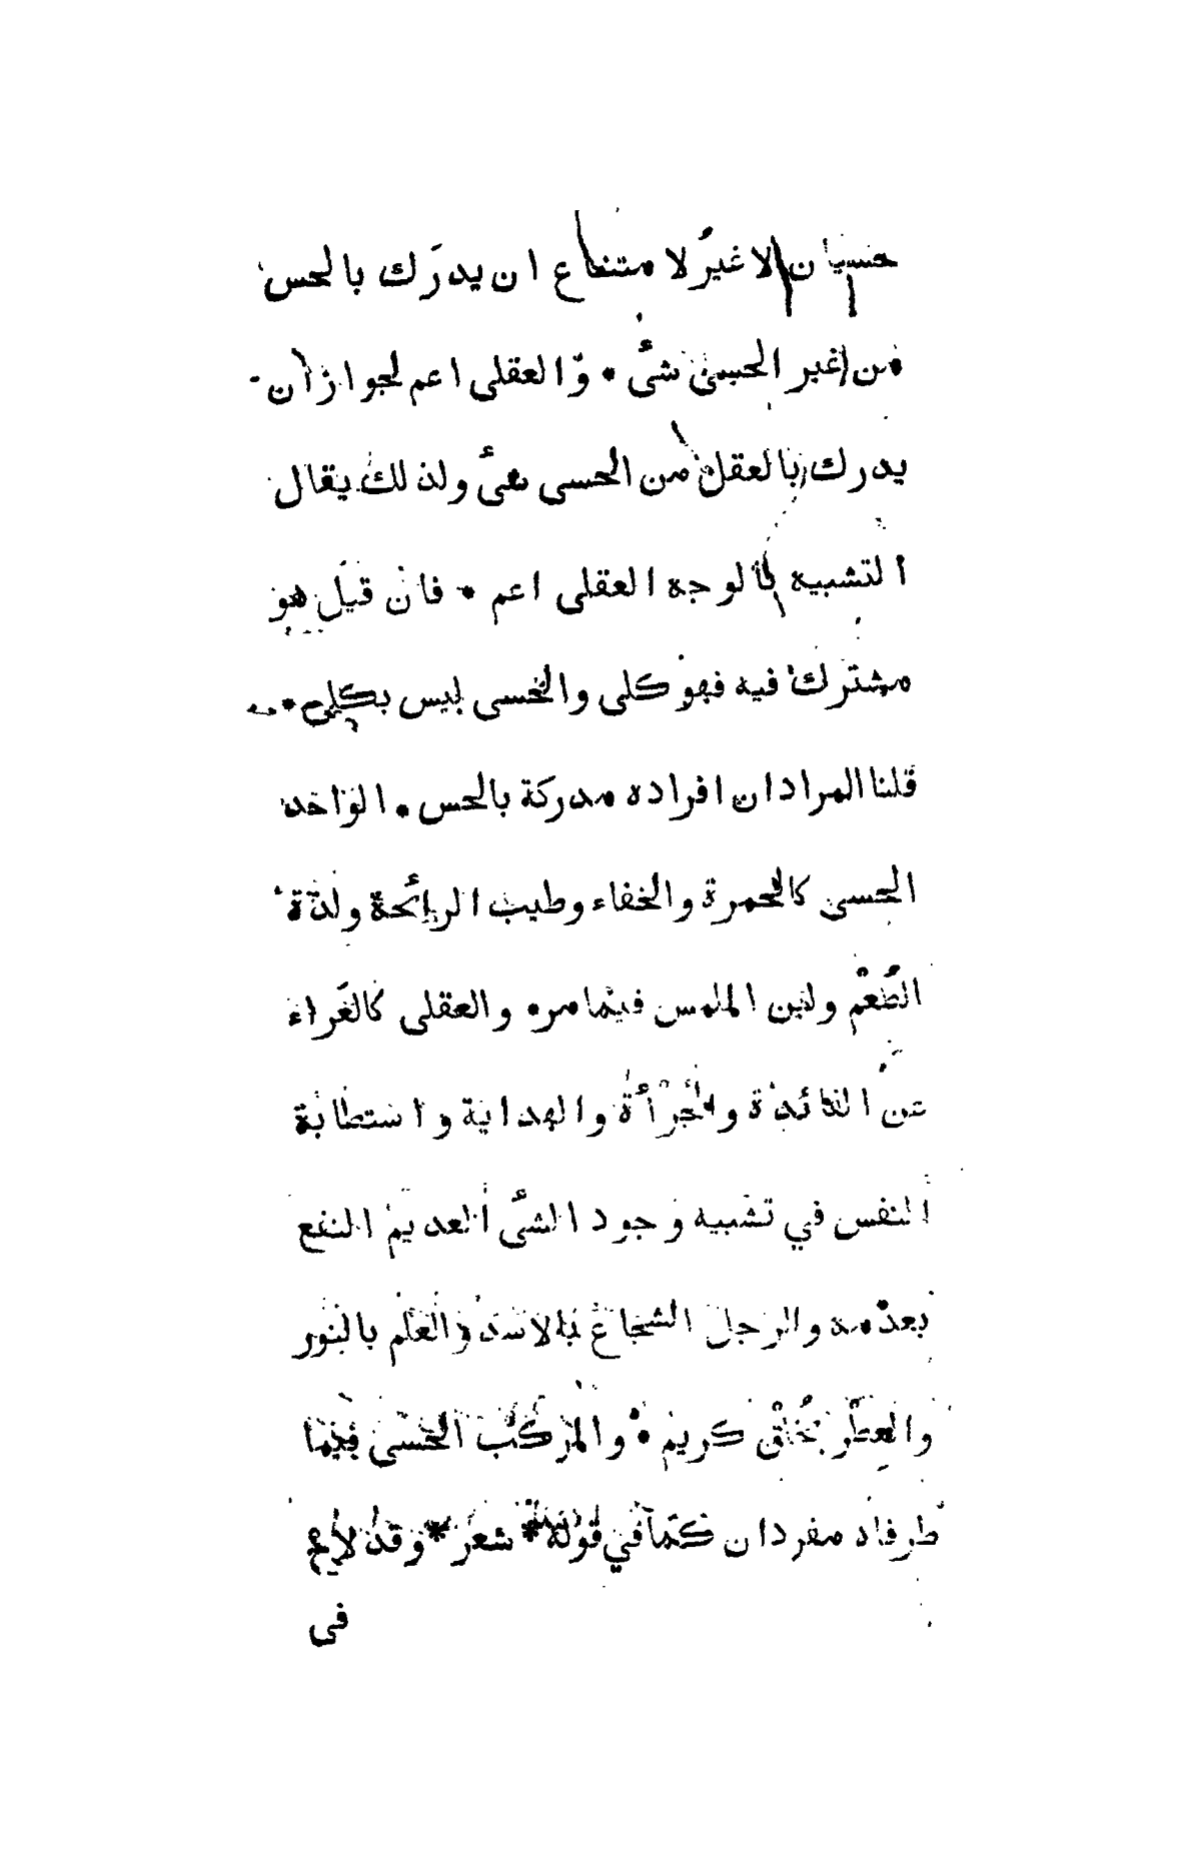 حسيان لا غير لامتناع ان يدرك بالحس
من غير الحسى شئ * والعقلى اعم لجوازان
يدرك بالعقل من الحسى شئ ولذلك يقال
التشبيه بالوجه العقلى اعم * فان قيل هو
مشترك فيه فهو كلى والحسى ليس بكلى *
قلنا المراد ان افراده مدركة بالحس * الواحد
الحسى كالحمرة والخفاء وطيب الرائحة ولذة
الطعم ولين الملمس فيما مر * والعقلى كالعراء
عن الفائدة والجرأة والهداية واستطابة
النفس في تشبيه وجود الشئ العديم النفع
بعدمه والرجل الشجاع بالاسد والعلم بالنور
والعطر بخلق كريم * والمركب الحسى فيما
طرفاه مفردان كما في قوله * شعر * وقد لاح
فى